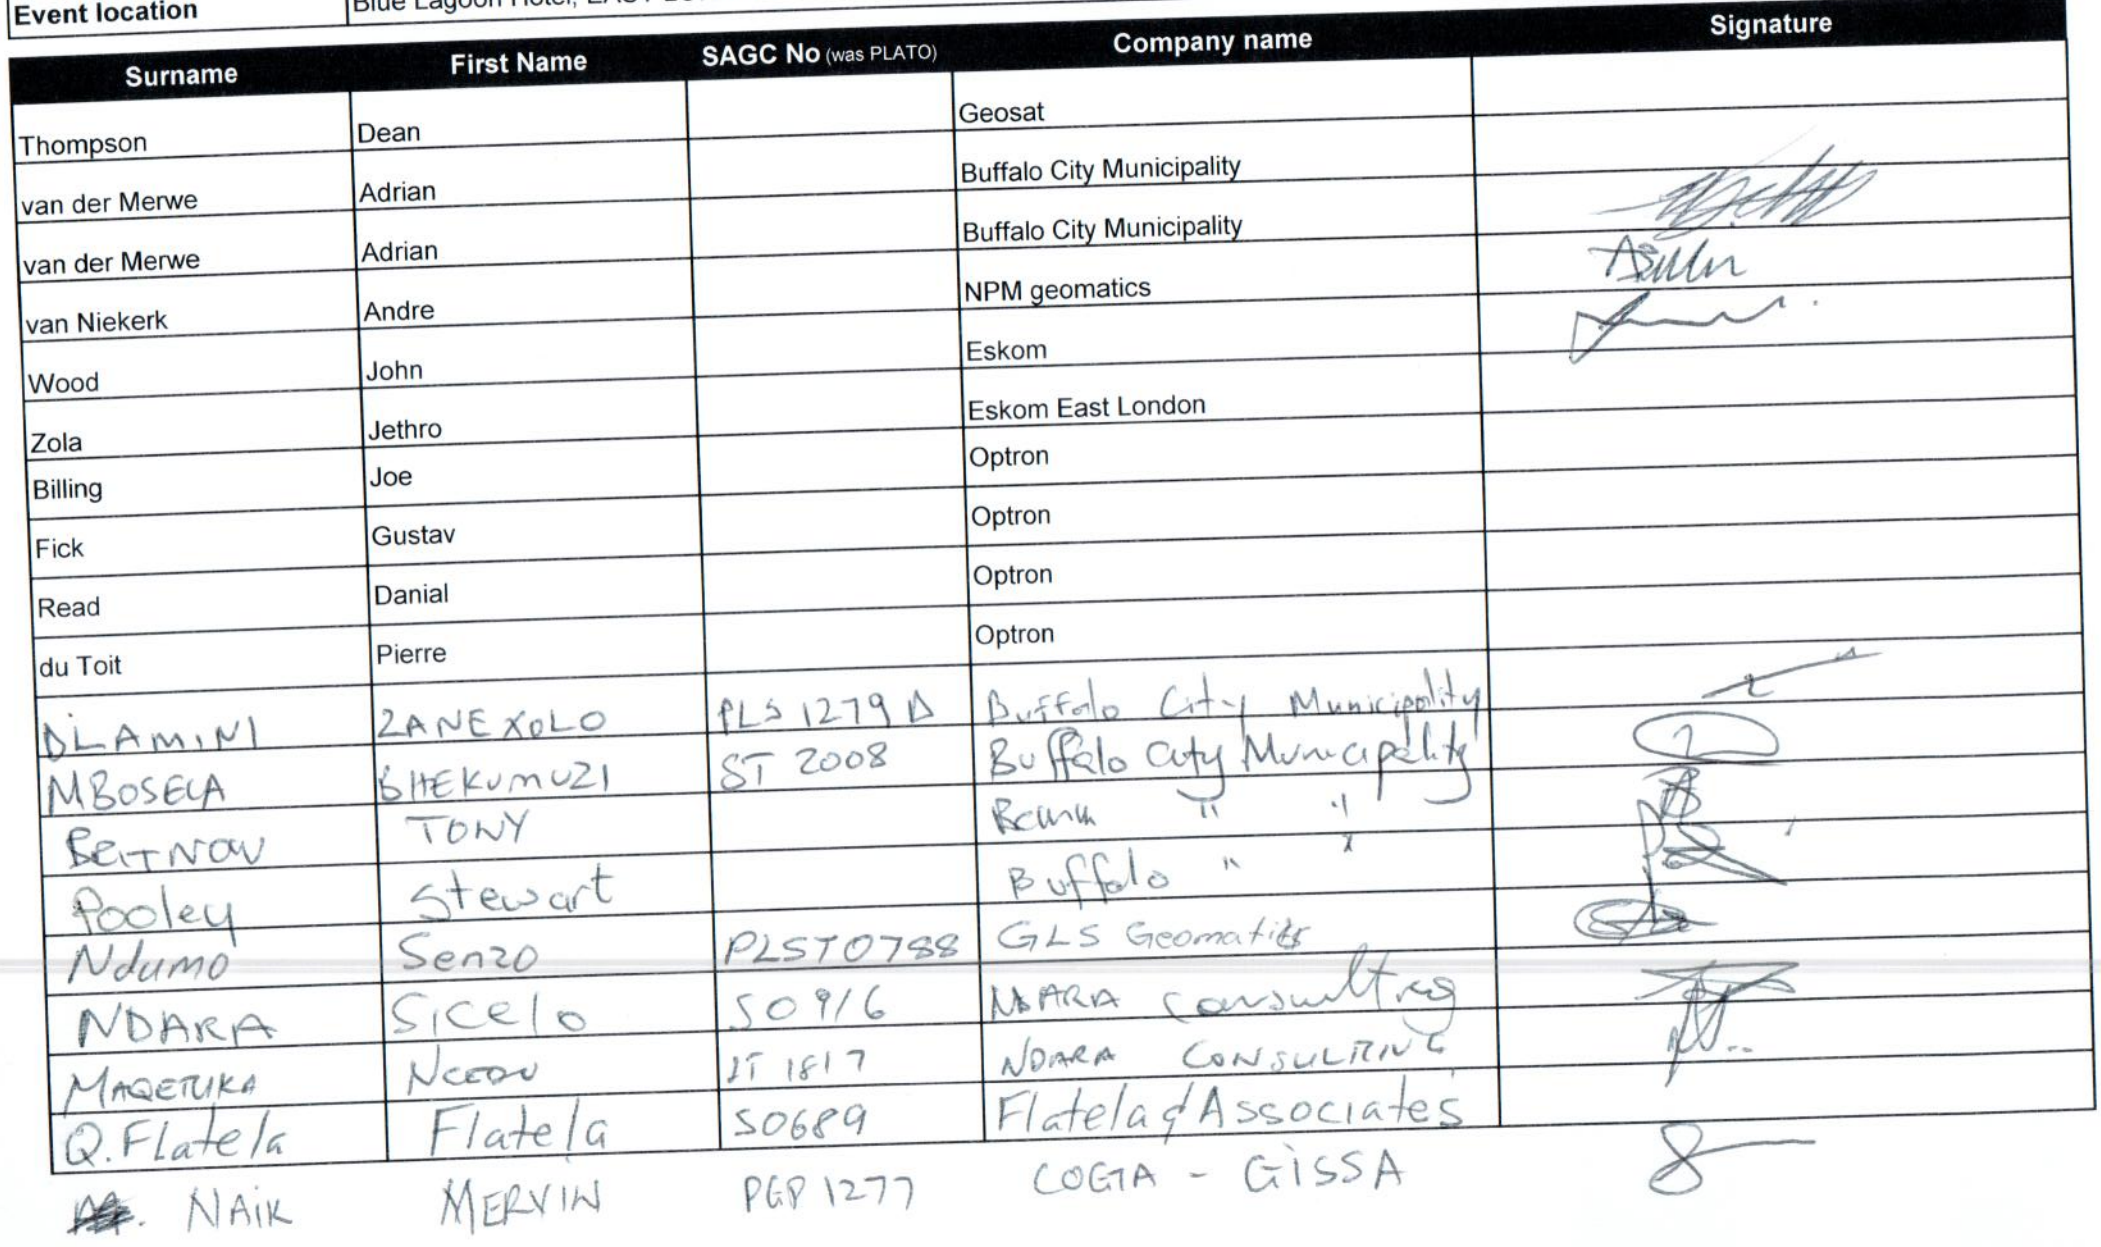 Event location Blue Lagoon Hotel,
Surname First Name SAGC No (was PLATO) Company name Signature
Thompson Dean Geosat
van der Merwe Adrian Buffalo City Municipality
van der Merwe Adrian Buffalo City Municipality
van Niekerk Andre NPM geomatics
Wood John Eskom
Zola Jethro Eskom East London
Billing Joe Optron
Fick Gustav Optron
Read Danial Optron
du Toit Pierre Optron
DLAMINI ZANEXOLO PLS 1279 D Buffalo City Municipality
MBOSELA BHEKUMUZI ST 2008 Buffalo City Municipality
TONY " "
Pooley Stewart Buffalo " "
Ndumo Senzo PLST0788 GLS Geomatics
NDARA Sicelo S0916 NDARA Consulting
MAQETUKA NCEDO 1817 NDARA CONSULTING
Q. Flatela Flatela S0689 Flatela & Associates
NAIK MERVIN PGP 1277 COGTA - GISSA